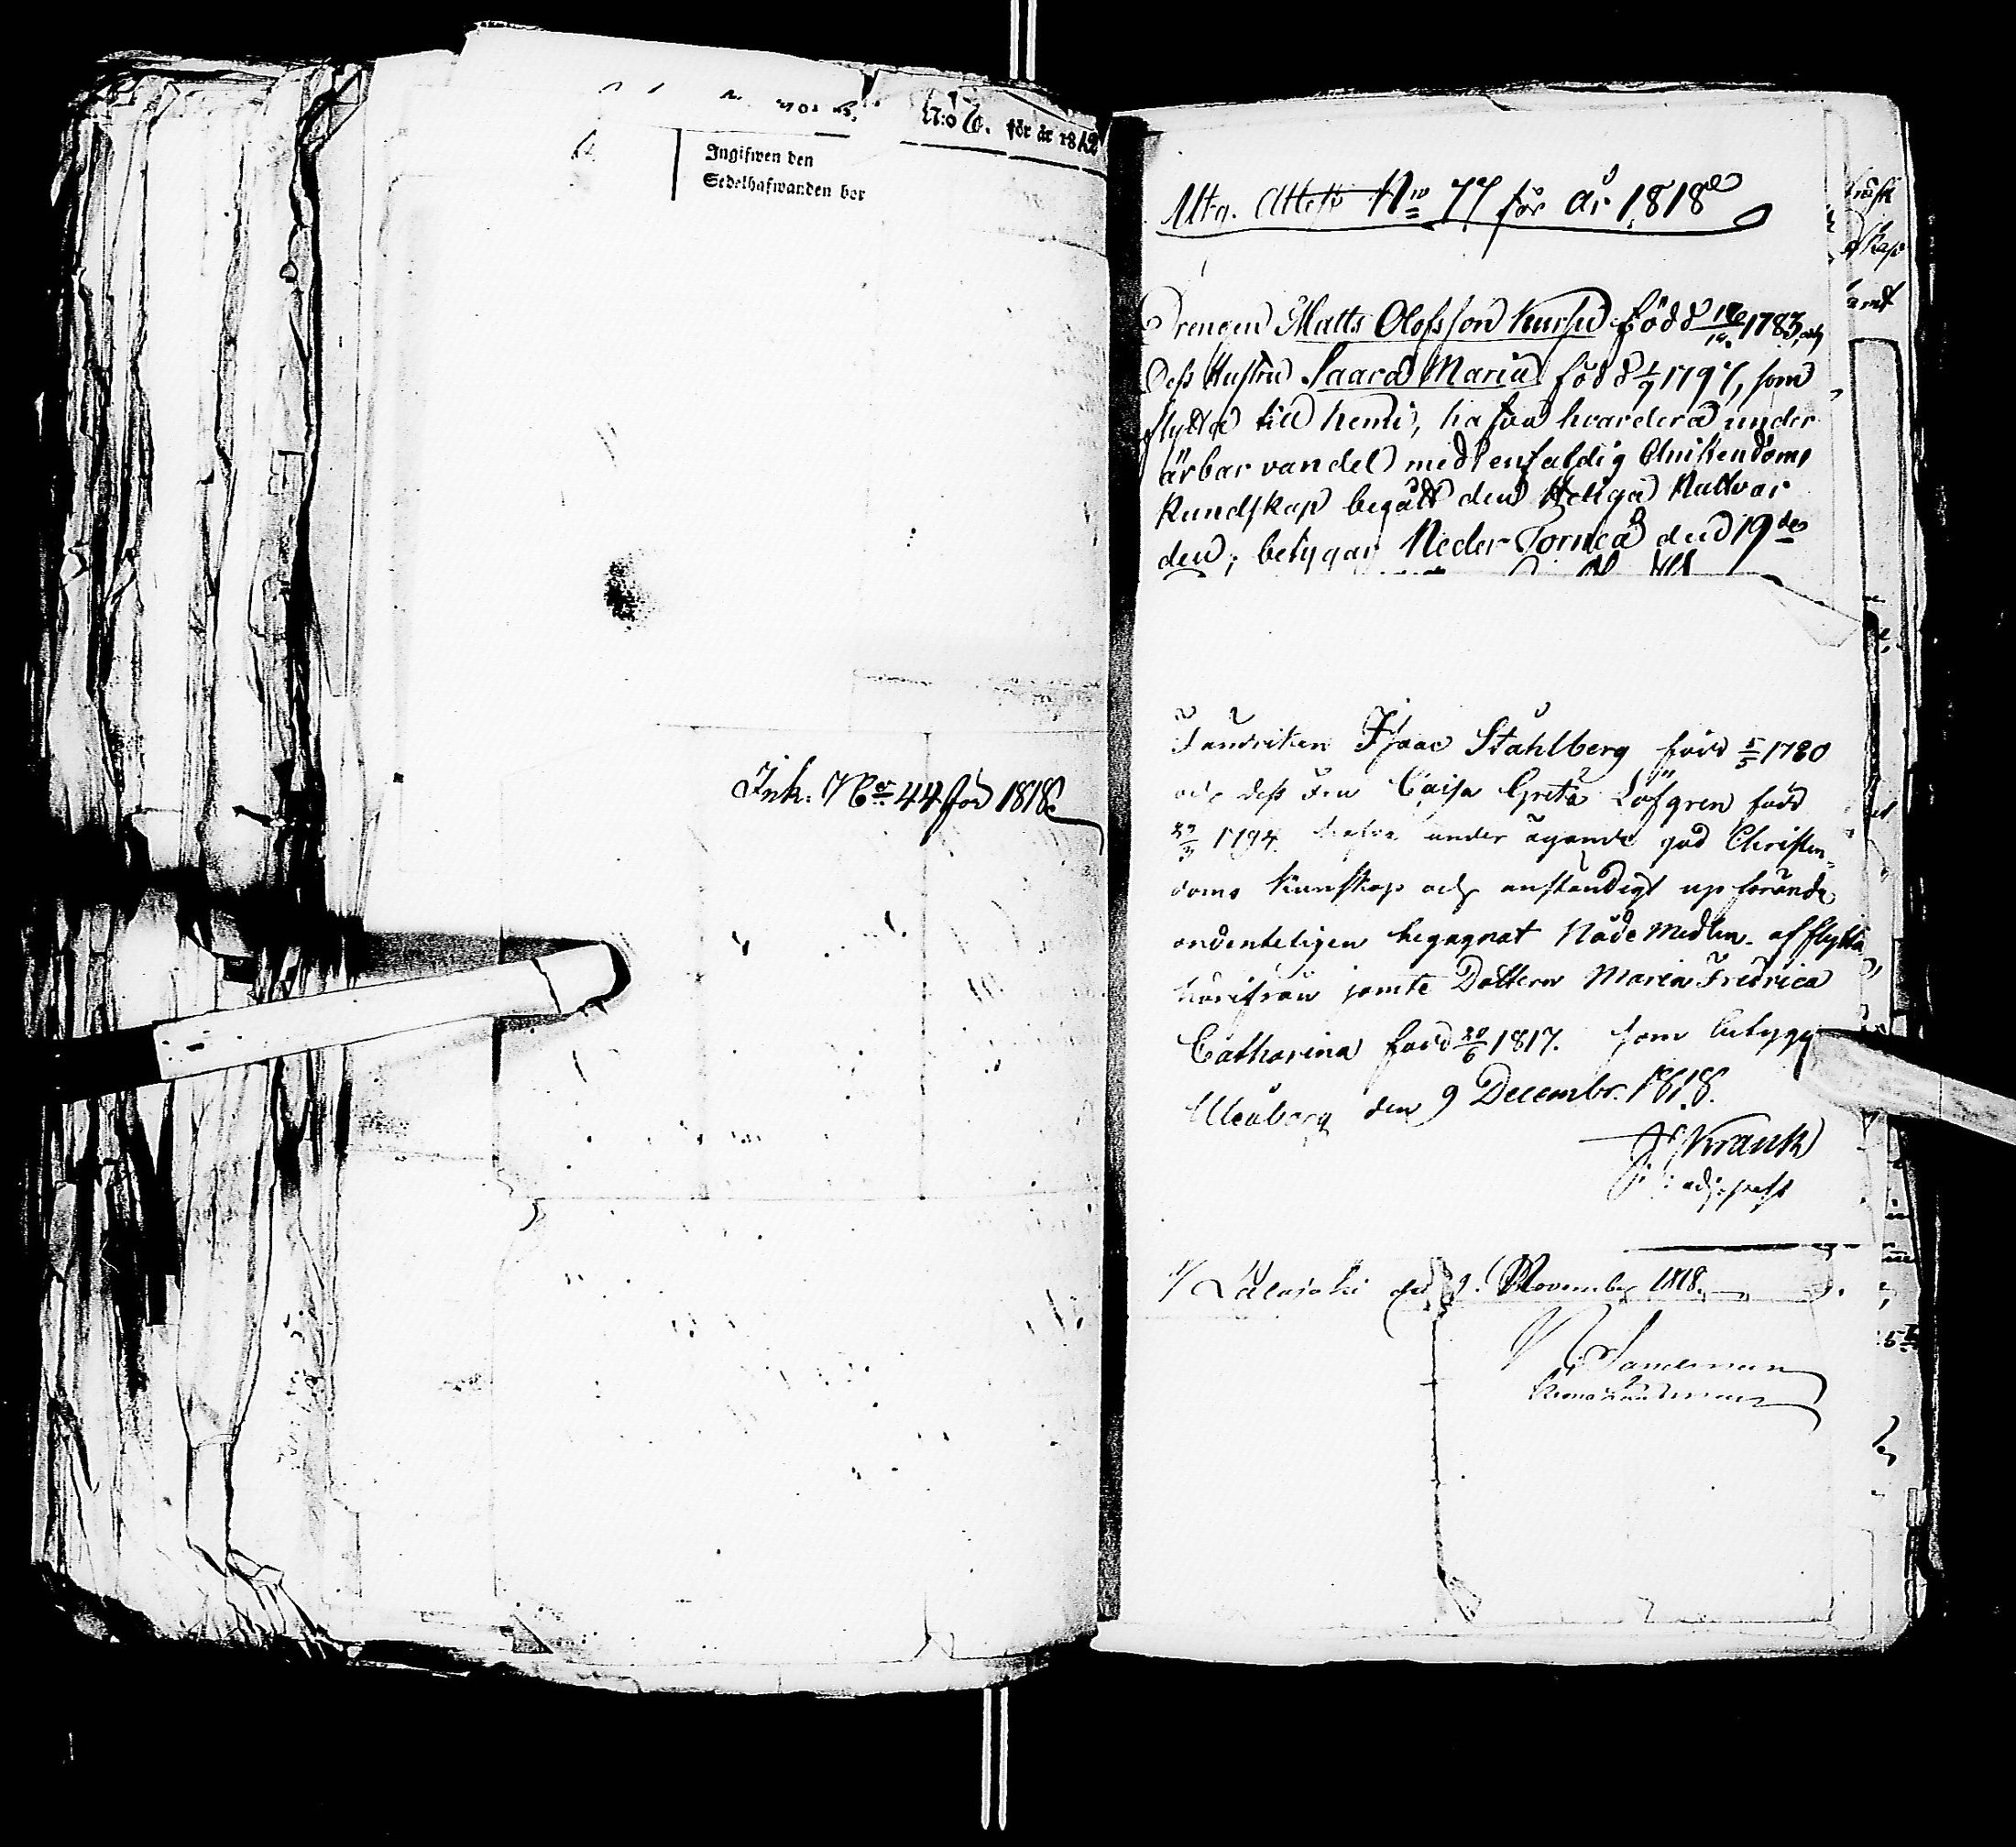 N:o 76. för år 1812
Ingifwen den
Sedelhafwanden bor
Ink. No 44 för 1818.
Utg. Attest No 77 för år 1818
Drengen Matts Olofsson född 1783, och
Dess Hustru Saara Maria född 1/9 1797, som
flytta till Kemi, hafva hvardera under
ärbar vandel med enfaldig Christendoms
Kundskap begått den Heliga Nattvar
den; betygar Neder Torneå den 19de
Fendriken Isaac Ståhlberg född 5/5 1780
och dess Fru Caisa Greta Löfgren född
29/3 1794 hafva under ägande god Christen-
doms Kunskap och anständigt upförande
ordenteligen begagnat Nåde Medlen. afflytta
härifrån jämte Dottern Maria Fredrica
Catharina född 20/6 1817. som betygar
Uleåborg den 9 Decembr. 1818.
J. Krank
adj: past
den 9. November 1818.
Sandman
Krono Länsman